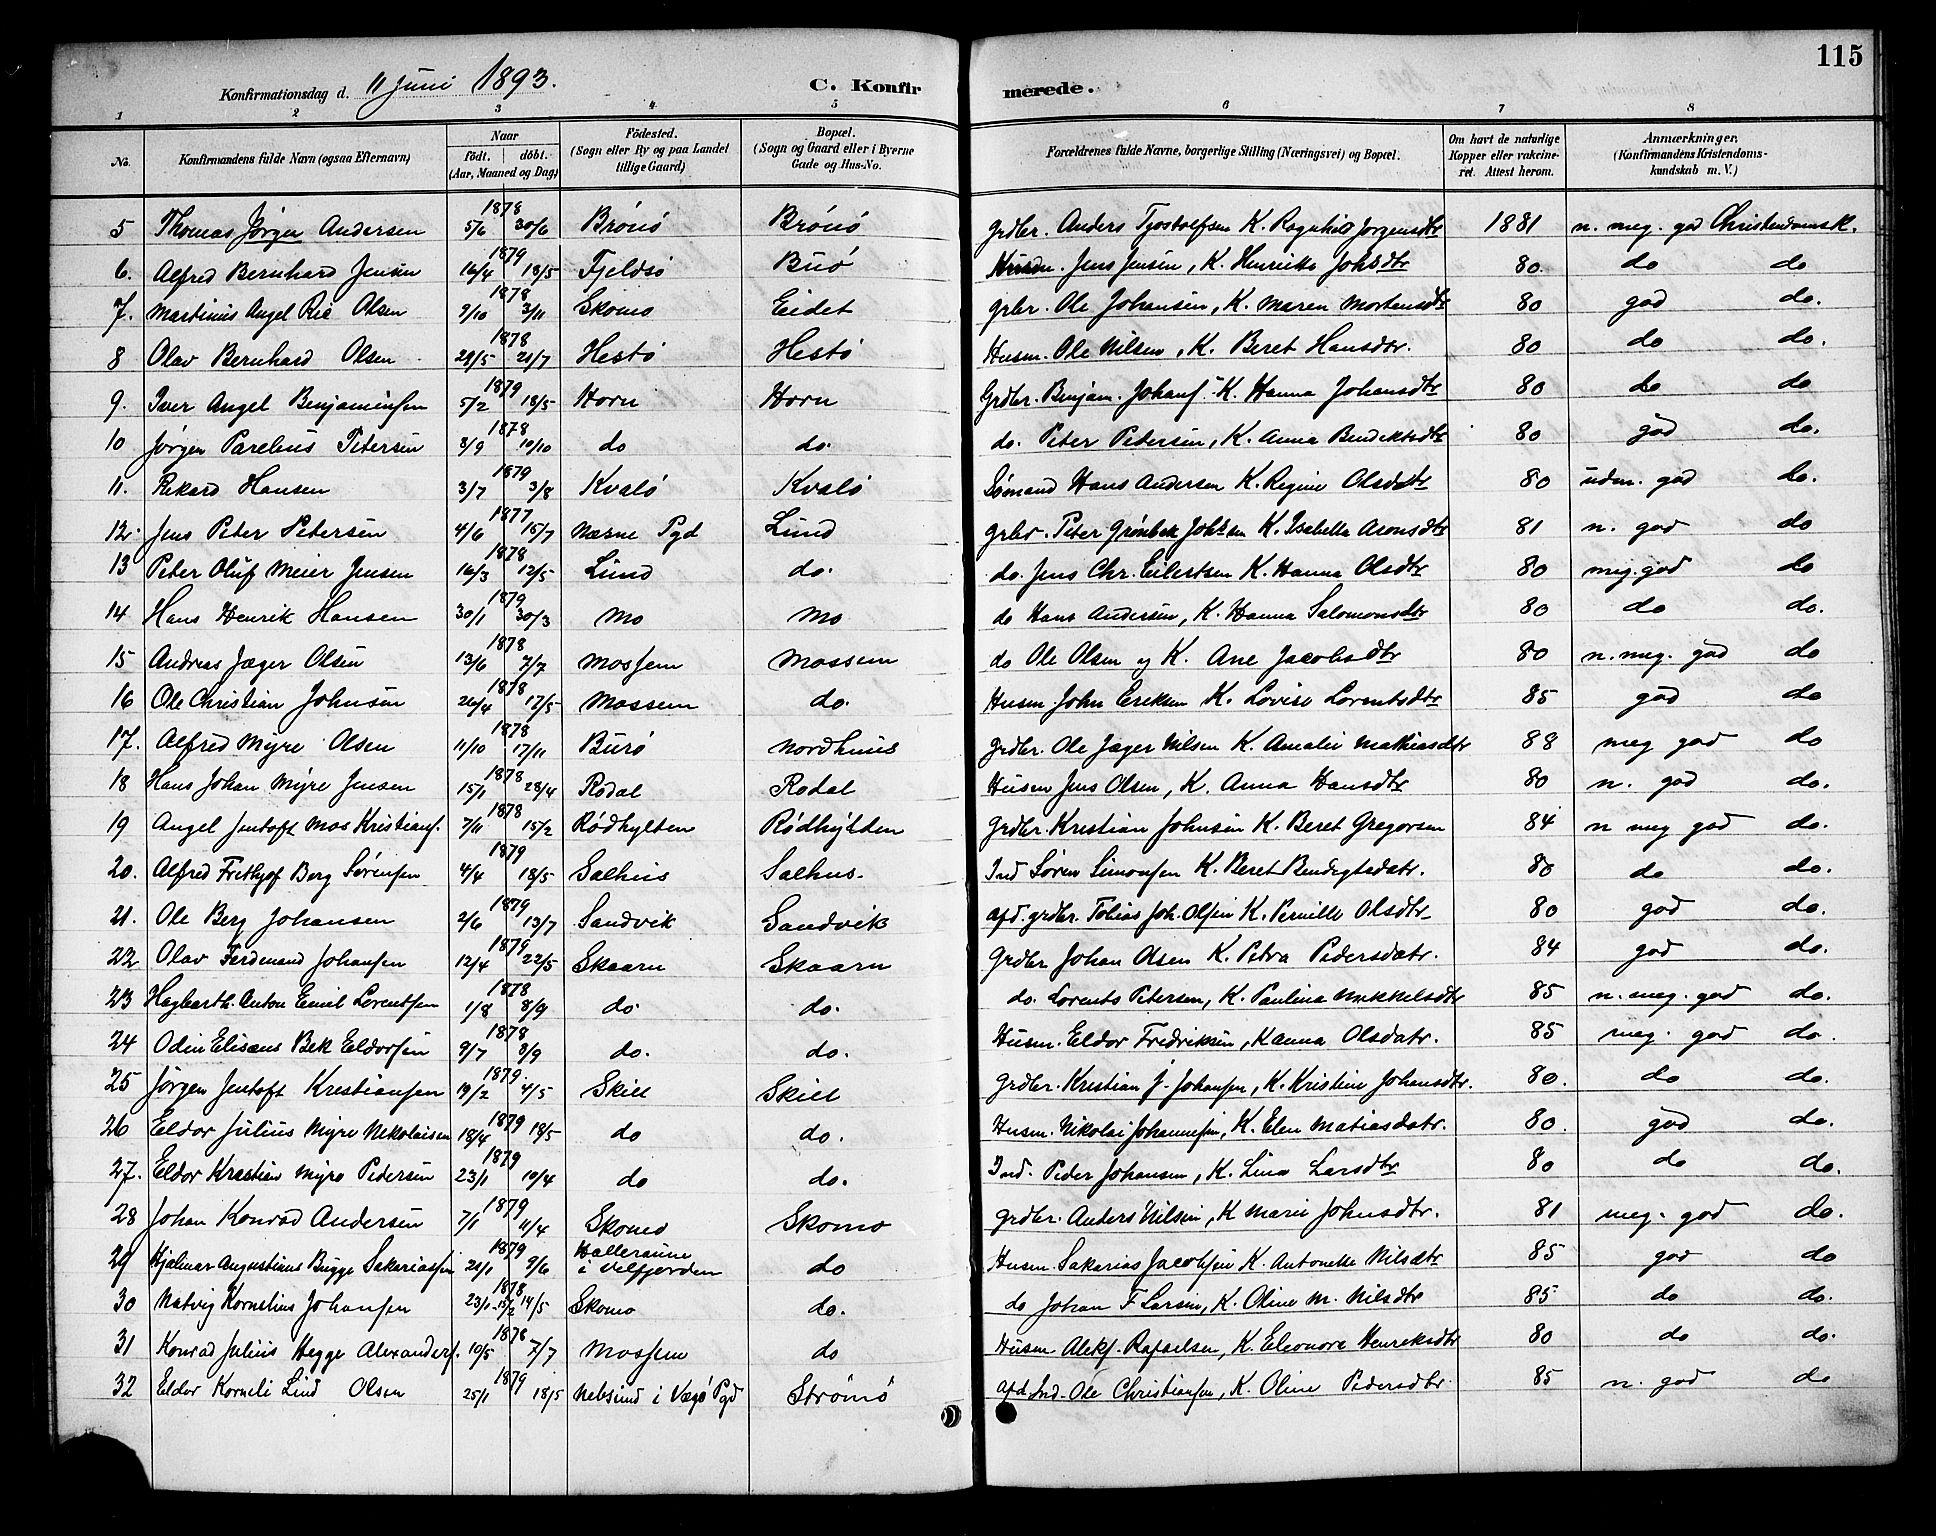 115
Konfirmationsdag d. 11 Juni 1893. C. Konfirmerede.
1 2 3 4 5 6 7 8
No. Konfirmandens fulde Navn (ogsaa Efternavn) Naar födt. döbt. (Aar, Maaned og Dag) Födested. (Sogn eller By og paa Landet tillige Gaard) Bopæl. (Sogn og Gaard eller i Byerne Gade og Hus-No. Forældrenes fulde Navne, borgerlige Stilling (Næringsvei) og Bopæl. Om havt de naturlige Kopper eller vakcineret. Attest herom. Anmærkninger, (Konfirmandens Kristendomskundskab m. V.)
5 Thomas Jörgen Andersen 1878 5/6 30/6 Brönö Brönö Grdbr. Anders Tjostolfsen K. Ragnhild Jörgensdtr 1881 n. meg. god Christendomsk.
6. Alfred Bernhard Jensen 1879 16/4 18/5 Fjeldsö Buö Jens Jensen, K. Henrikke Johsdtr 80. do do
7. Martinus Angel Olsen 1878 9/10 3/11 Skomo Eidet grbr. Ole Johansen, K. Maren Mortensdtr 80 god do.
8 Olav Bernhard Olsen 1878 29/5 21/7 Hestö Hestö Husm. Ole Nilsen, K. Beret Hansdtr. 80 do do.
9. Iver Angel Benjaminsen 1879 5/2 18/5 Horn Horn Grdbr. Benjam. Johans. K. Hanna Johansdtr 80 do do
10 Jörgen Parelius Petersen 1878 3/9 10/10 do do. do. Peter Petersen, K. Anna Bendiktsdtr 80 god do.
11. Rikard Hansen 1879 3/7 3/8 Kvalö Kvalö Sömand Hans Andersen K. Regine Olsdatr 80 udm. god do.
12. Jens Peter Petersen 1877 4/6 15/7 Næsne Pgd Lund grbr. Peter Grönbek Johsen K. Isabella Aronsdtr 81 n. god do
13 Peter Oluf Meier Jensen 1878 16/3 12/5 Lund do. do. Jens Chr. Eilertsen K. Hanna Olsdtr 80 meg. god do
14 Hans Henrik Hansen 1879 30/1 30/3 Mo Mo do Hans Andersen, K. Hanna Salomonsdtr 80 do do.
15 Andreas Jæger Olsen 1878 13/6 7/7 Mossem Mossem do Ole Olsen og K. Ane Jacobsdtr 80 n. meg. god do
16 Ole Christian Johnsen 1878 26/4 12/5 Mossem do. Husm. John Eriksen K. Lovise Lorentsdtr 85 god do
17. Alfred Myre Olsen 1878 11/10 17/11 Burö Nordhuus Grdbr. Ole Jæger Nilsen K. Amalie Mathiasdtr 88 meg god do
18 Hans Johan Myre Jensen 1878 15/1 28/4 Rodal Rodal Husm Jens Olsen, K. Anna Hansdtr 80 n. god do.
19 Angel Jentoft Mos Kristians. 1878 7/11 15/2 Rödhylten Rödhylten Grdbr. Kristian Johnsen K. Beret Gregorsen 84 n meg god do.
20. Alfred Frithjof Berg Sörensen 1879 4/4 18/5 Salhus Salhus. Ind Sören Simonsen K. Beret Bendigtsdatr. 80 do do.
21. Ole Berg Johansen 1879 2/6 13/7 Sandvik Sandvik afd. grdbr. Tobias Joh. Olsen K. Pernille Olsdtr 80 god do.
22 Olav Ferdinand Johansen 1879 12/4 22/5 Skaarn Skaarn Grdbr Johan Olsen K. Petra Pedersdatr. 84 god do.
23 Hagbarth. Anton Emil Lorentsen 1878 1/8 8/9 do do. do. Lorents Petersen, K. Paulina Mikkelsdtr 85 n. meg. god do.
24 Odin Elisæus Bek Eldorsen 1878 9/7 8/9 do. do. Husm. Eldor Fredriksen, Kanna Olsdatr. 85 meg. god do.
25 Jörgen Jentoft Kristiansen 1879 19/2 4/5 Skill Skill Grdbr. Kristian J. Johansen, K. Kristine Johansdtr. 80. do do.
26 Eldor Julius Myre Nikolaisen 1879 18/4 18/5 do do. Husm. Nikolai Johannesen, K. Elen Matiasdatr. 80. god do.
27. Eldor Kristian Myre Pedersen 1879 23/1 10/4 do do. Ind. Peder Johansen, K. Lina Larsdtr 80 do do.
28 Johan Konrad Andersen 1879 7/1 11/4 Skomo Skomo grdbr. Anders Nilsen, K Marie Johnsdtr. 81 meg. god do.
29 Hjalmar Augustinus Bugge Sakariassen 1879 21/1 9/6 i Velfjorden do Husm. Sakarias Jacobsen K. Antonette Nilsdtr 85 god do
30 Natvig Kornelius Johansen 1878 23/1 15/2 14/5 Skomo do. do Johan F Larsen, K. Oline M. Nilsdtr 85 do do.
31 Konrad Julius Hegge Alexanders. 1878 10/5 7/7 Mossem do Husm Aleks. Rafaelsen, K. Eleonora Henriksdtr 80 do do.
32 Eldor Korneli Lind Olsen 1879 25/1 18/5 Nebsund i Vægö Pgd Strömö afd. Ind. Ole Christiansen, K. Oline Pedersdtr. 85 n. god do